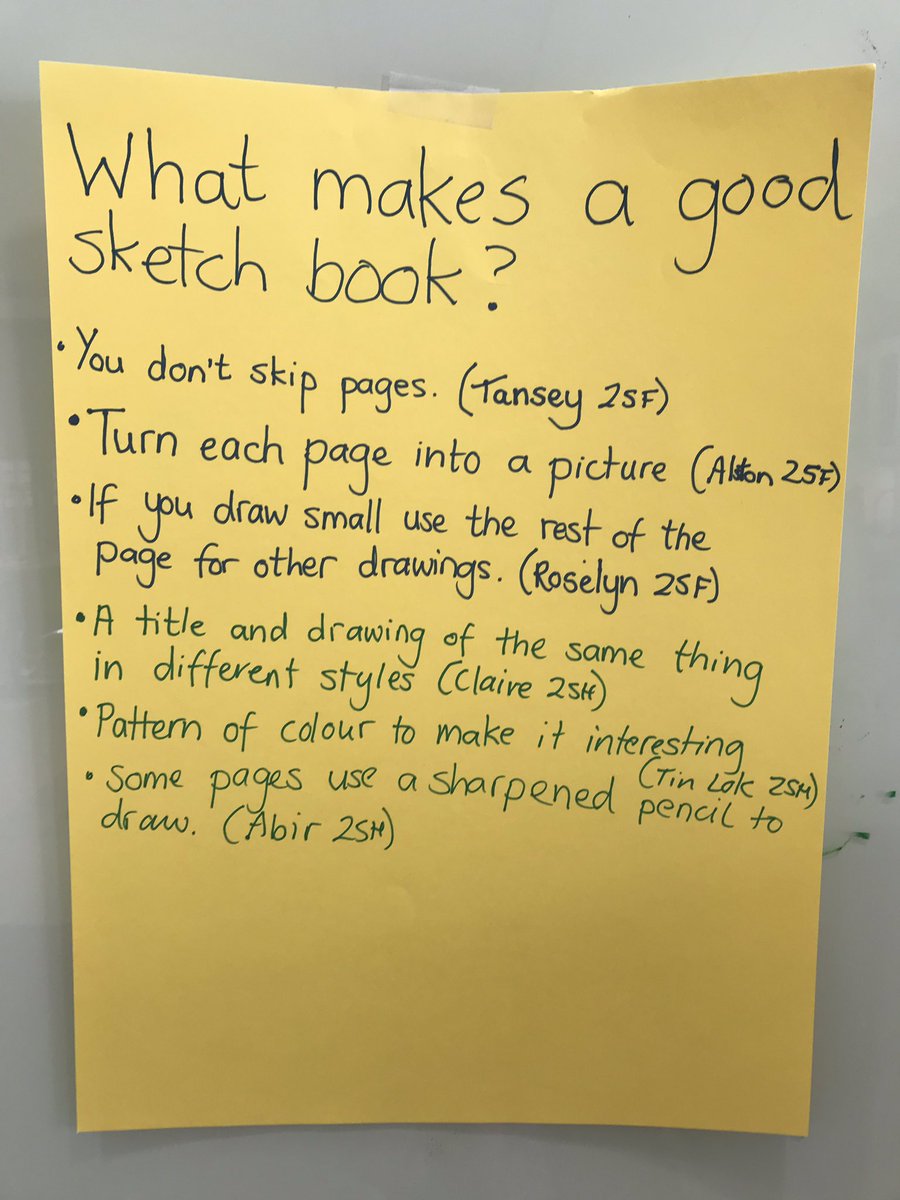 What makes a good
sketch book?
• You don't skip pages. (Tansey 2SF)
• Turn each page into a picture (Alston 2SF)
• If you draw small use the rest of the
page for other drawings. (Roselyn 2SF)
• A title and drawing of the same thing
in different styles (Claire 2SH)
• Pattern of colour to make it interesting
(Tin Lok 2SH)
• Some pages use a sharpened pencil to
draw. (Abir 2SH)